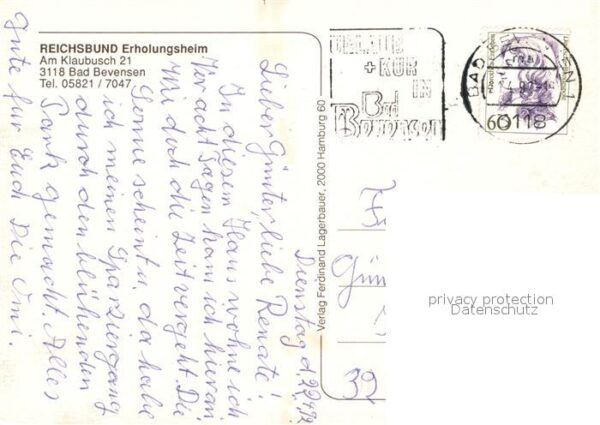 REICHSBUND Erholungsheim
Am Klaubusch 21
3118 Bad Bevensen
Tel. 05821 / 7047
URLAUB
+ KUR
IN
Bad
Bevensen
BAD
60
Verlag Ferdinand Lagerbauer, 2000 Hamburg 60
Dienstag d.
Lieber Günter, liebe Renate!
In diesem Haus wohne ich
Vor acht Tagen kam ich hier an,
wie doch die Zeit vergeht. Die
Sonne scheint u. da habe
ich meinen Spaziergang
durch den blühenden
Park gemacht. Alles
Gute für Euch Die Imi.
Gün
39
privacy protection
Datenschutz